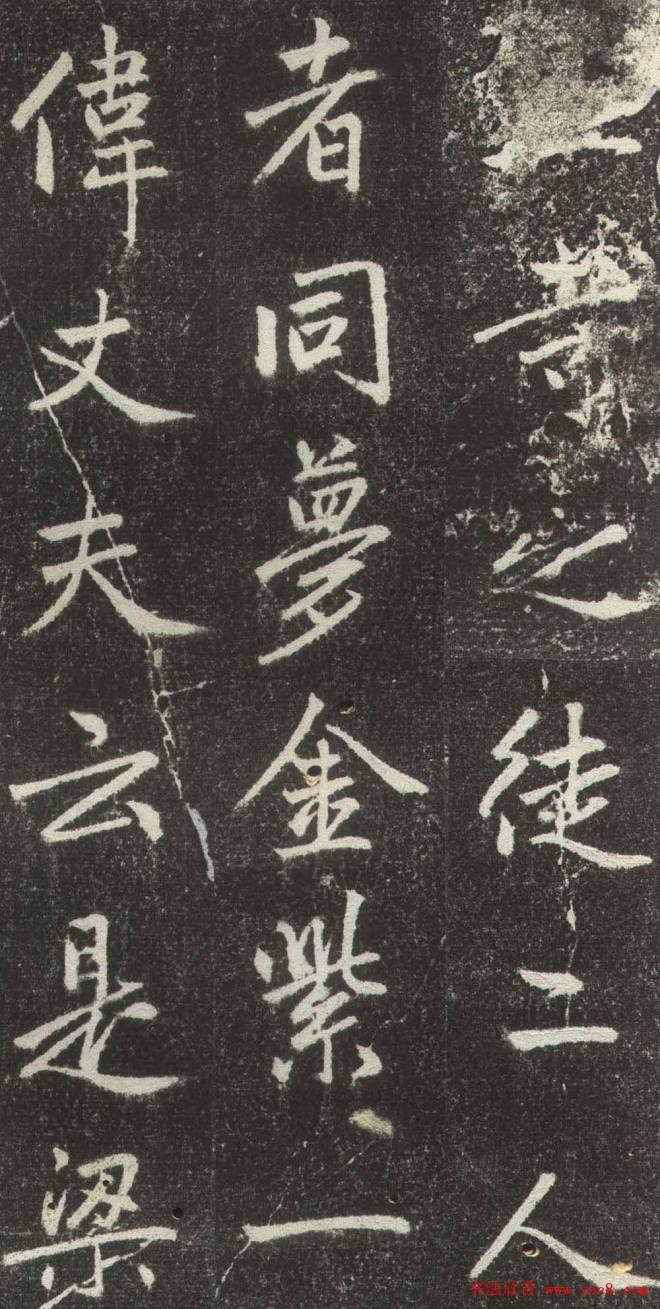 一之徒二人
者同夢金紫一
偉丈夫云是梁
书法欣赏 www.yac8.com